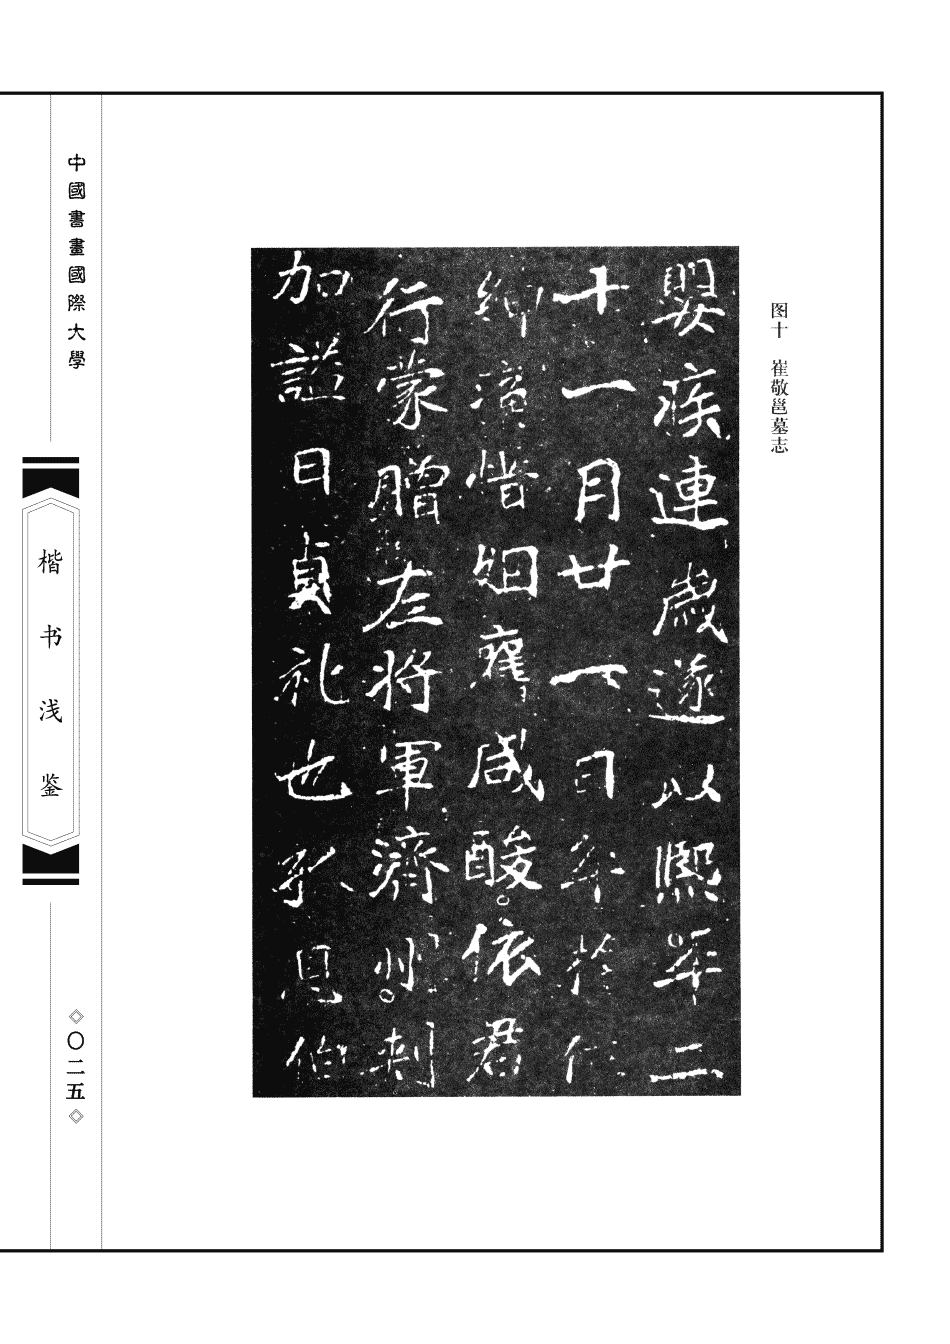 图十 崔敬邕墓志
嬰疾連歲遂以熙平二
十一月廿一日卒於位
縉紳痛惜姻舊咸酸依君
行蒙贈左將軍濟州刺
加謚曰貞礼也孤息伯
中國書畫國際大學
楷书浅鉴
〇二五